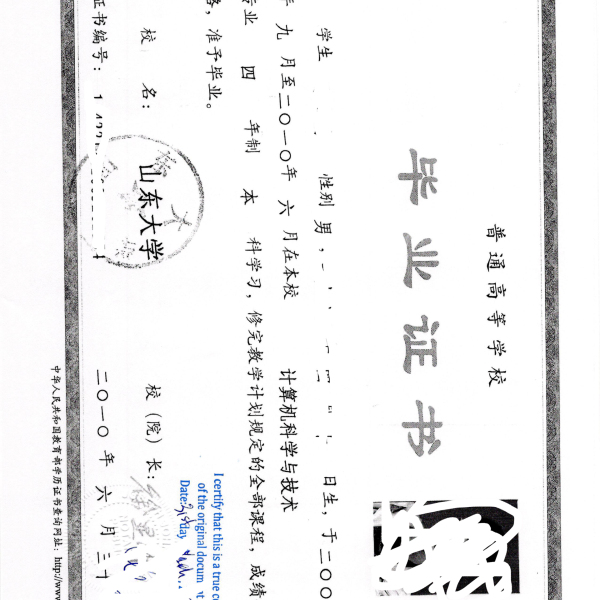 普通高等学校
毕业证书
学生 性别 男， 日生，于二〇〇
年 九 月至二〇一〇年 六 月在本校 计算机科学与技术
专业 四 年制 本 科学习，修完教学计划规定的全部课程，成绩
格，准予毕业。
校 名： 山东大学 校（院）长：
证书编号： 二〇一〇 年 六 月 三十
I certify that this is a true co
of the original docum nt
Date: day
中华人民共和国教育部学历证书查询网址：http://www